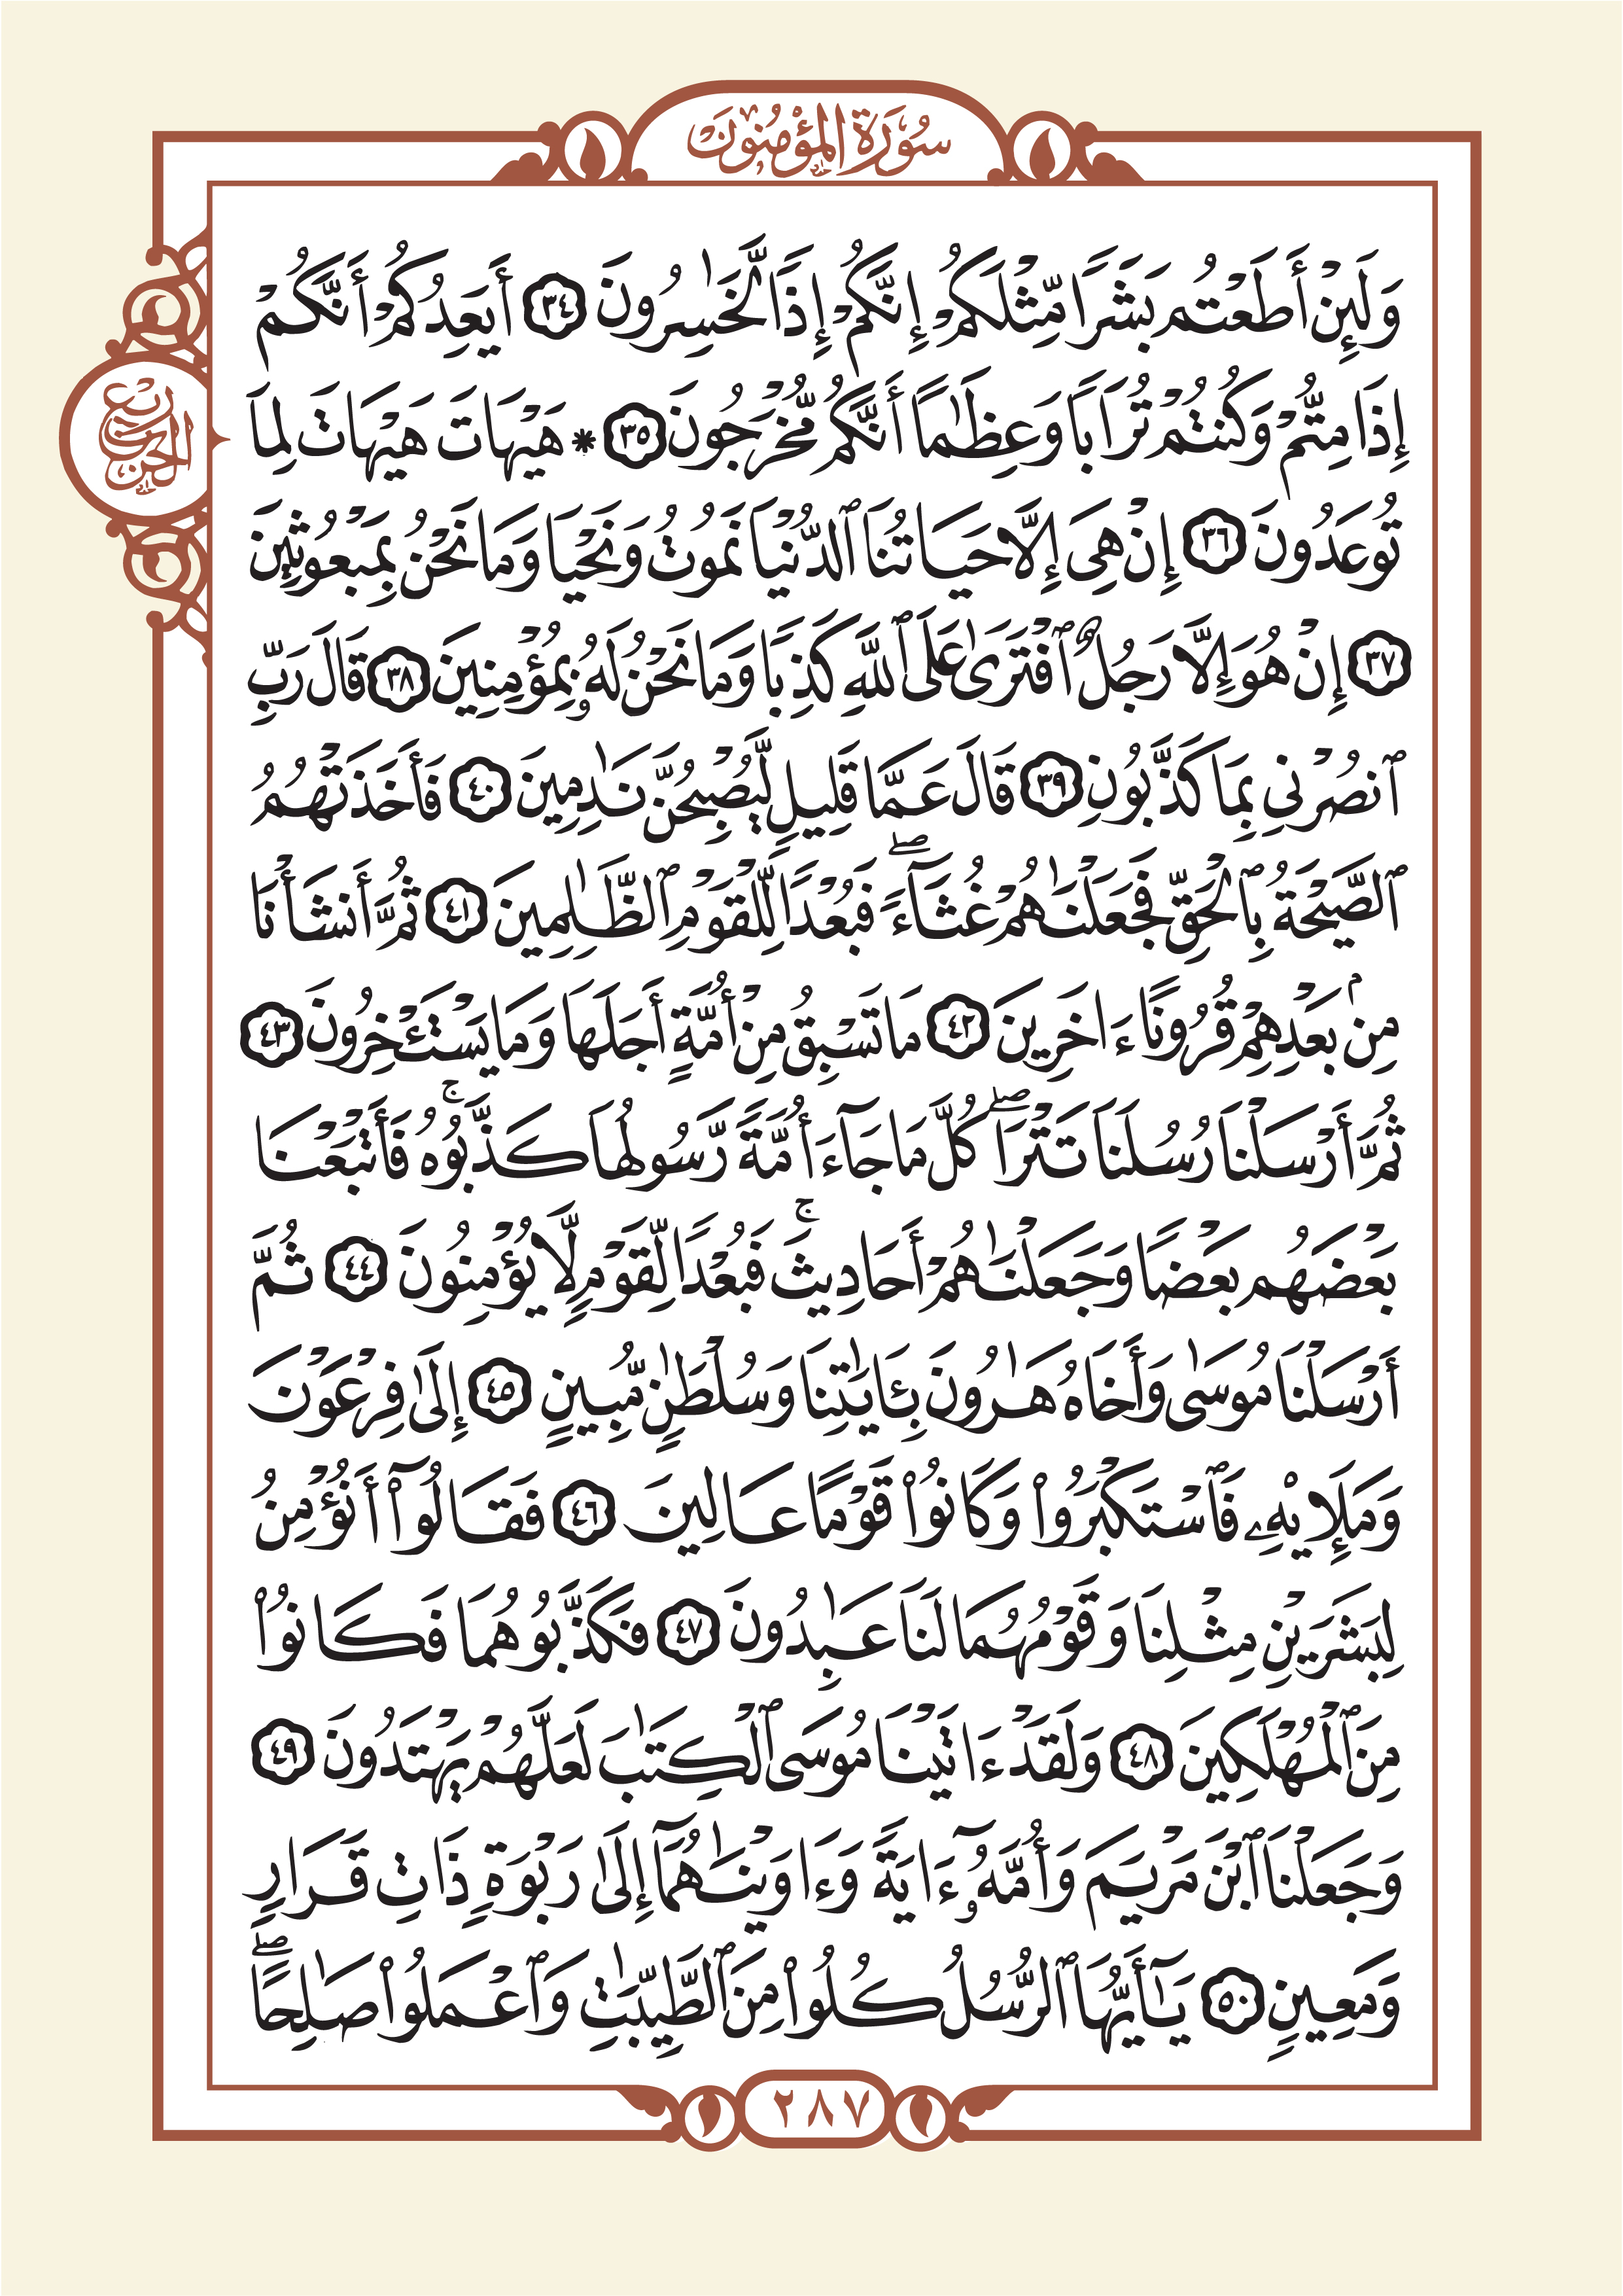 سُورَةُ المُؤْمِنُونَ
وَلَئِنْ أَطَعْتُم بَشَرًا مِّثْلَكُمْ إِنَّكُمْ إِذًا لَّخَٰسِرُونَ ٣٤ أَيَعِدُكُمْ أَنَّكُمْ
إِذَا مِتُّمْ وَكُنتُمْ تُرَابًا وَعِظَٰمًا أَنَّكُم مُّخْرَجُونَ ٣٥ * هَيْهَاتَ هَيْهَاتَ لِمَا
تُوعَدُونَ ٣٦ إِنْ هِىَ إِلَّا حَيَاتُنَا ٱلدُّنْيَا نَمُوتُ وَنَحْيَا وَمَا نَحْنُ بِمَبْعُوثِينَ
٣٧ إِنْ هُوَ إِلَّا رَجُلٌ ٱفْتَرَىٰ عَلَى ٱللَّهِ كَذِبًا وَمَا نَحْنُ لَهُۥ بِمُؤْمِنِينَ ٣٨ قَالَ رَبِّ
ٱنصُرْنِى بِمَا كَذَّبُونِ ٣٩ قَالَ عَمَّا قَلِيلٍ لَّيُصْبِحُنَّ نَٰدِمِينَ ٤٠ فَأَخَذَتْهُمُ
ٱلصَّيْحَةُ بِٱلْحَقِّ فَجَعَلْنَٰهُمْ غُثَآءً ۖ فَبُعْدًا لِّلْقَوْمِ ٱلظَّٰلِمِينَ ٤١ ثُمَّ أَنشَأْنَا
مِنۢ بَعْدِهِمْ قُرُونًا ءَاخَرِينَ ٤٢ مَا تَسْبِقُ مِنْ أُمَّةٍ أَجَلَهَا وَمَا يَسْتَـْٔخِرُونَ ٤٣
ثُمَّ أَرْسَلْنَا رُسُلَنَا تَتْرَا ۖ كُلَّ مَا جَآءَ أُمَّةً رَّسُولُهَا كَذَّبُوهُ ۚ فَأَتْبَعْنَا
بَعْضَهُم بَعْضًا وَجَعَلْنَٰهُمْ أَحَادِيثَ ۚ فَبُعْدًا لِّقَوْمٍ لَّا يُؤْمِنُونَ ٤٤ ثُمَّ
أَرْسَلْنَا مُوسَىٰ وَأَخَاهُ هَٰرُونَ بِـَٔايَٰتِنَا وَسُلْطَٰنٍ مُّبِينٍ ٤٥ إِلَىٰ فِرْعَوْنَ
وَمَلَإِيْهِۦ فَٱسْتَكْبَرُوا۟ وَكَانُوا۟ قَوْمًا عَالِينَ ٤٦ فَقَالُوٓا۟ أَنُؤْمِنُ
لِبَشَرَيْنِ مِثْلِنَا وَقَوْمُهُمَا لَنَا عَٰبِدُونَ ٤٧ فَكَذَّبُوهُمَا فَكَانُوا۟
مِنَ ٱلْمُهْلَكِينَ ٤٨ وَلَقَدْ ءَاتَيْنَا مُوسَى ٱلْكِتَٰبَ لَعَلَّهُمْ يَهْتَدُونَ ٤٩
وَجَعَلْنَا ٱبْنَ مَرْيَمَ وَأُمَّهُۥٓ ءَايَةً وَءَاوَيْنَٰهُمَآ إِلَىٰ رَبْوَةٍ ذَاتِ قَرَارٍ
وَمَعِينٍ ٥٠ يَٰٓأَيُّهَا ٱلرُّسُلُ كُلُوا۟ مِنَ ٱلطَّيِّبَٰتِ وَٱعْمَلُوا۟ صَٰلِحًا ۖ
ربع الحزب
٢٨٧